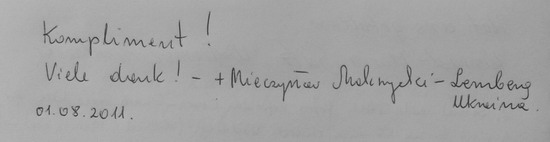 Kompliment !
Viele dank ! - + Mieczysław Mokrzycki - Lemberg
Ukraina.
01.08.2011.